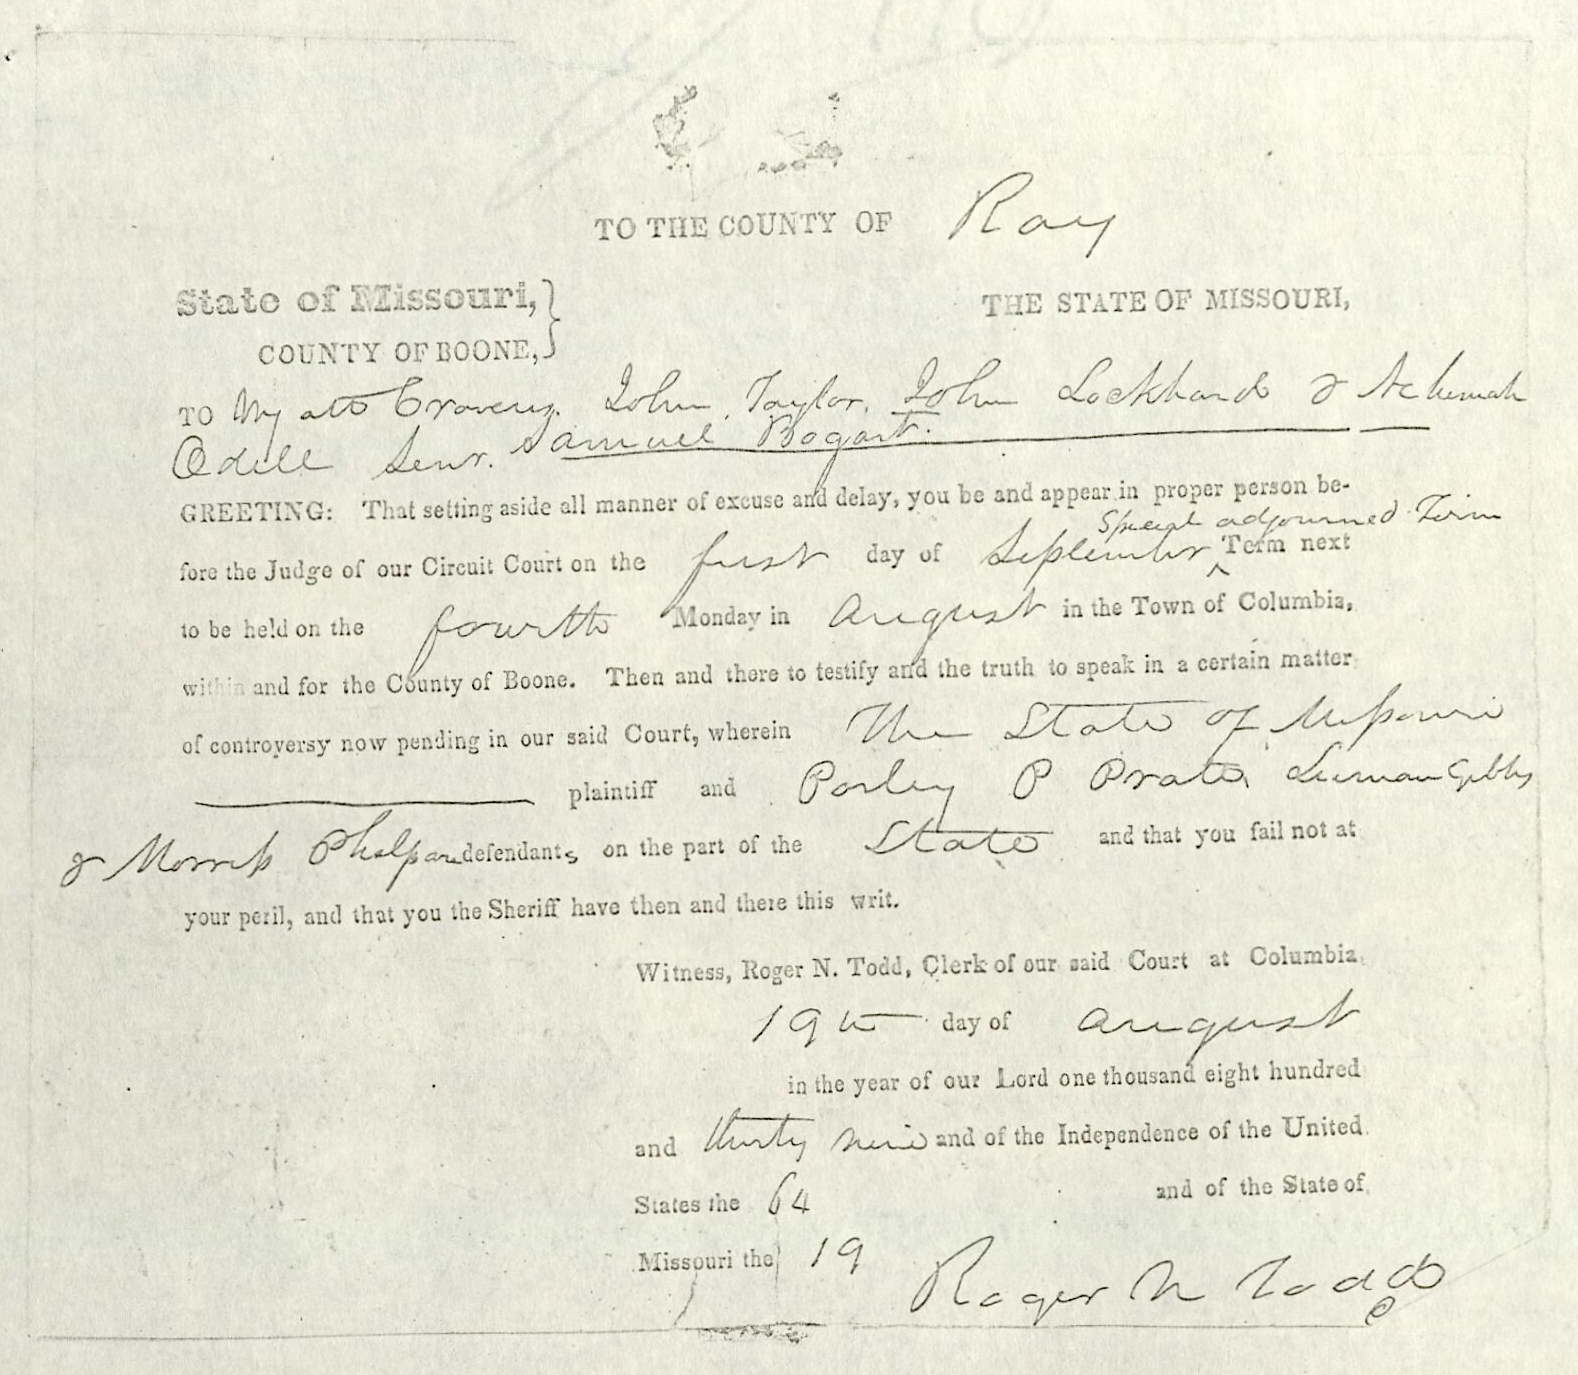 TO THE COUNTY OF Ray
State of Missouri, }
COUNTY OF BOONE, }
THE STATE OF MISSOURI,
TO Wyatt Cravens, John Taylor, John Lockhard & Nehemiah
Odell Senr. Samuel Bogart.
GREETING: That setting aside all manner of excuse and delay, you be and appear in proper person be-
Special adjourned Term
fore the Judge of our Circuit Court on the first day of September ^ Term next
to be held on the fourth Monday in August in the Town of Columbia,
within and for the County of Boone. Then and there to testify and the truth to speak in a certain matter
of controversy now pending in our said Court, wherein The State of Missouri
plaintiff and Parley P Pratt, Luman Gibbs
& Morris Phelps are defendants on the part of the State and that you fail not at
your peril, and that you the Sheriff have then and there this writ.
Witness, Roger N. Todd, Clerk of our said Court at Columbia
19th day of August
in the year of our Lord one thousand eight hundred
and thirty nine and of the Independence of the United
States the 64 and of the State of
Missouri the 19
Roger N Todd